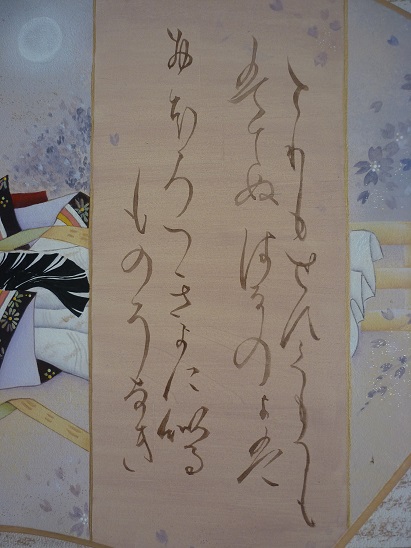 てりもせすくもりも
はてぬはるのよの
おほろつきよに似る
ものそなき